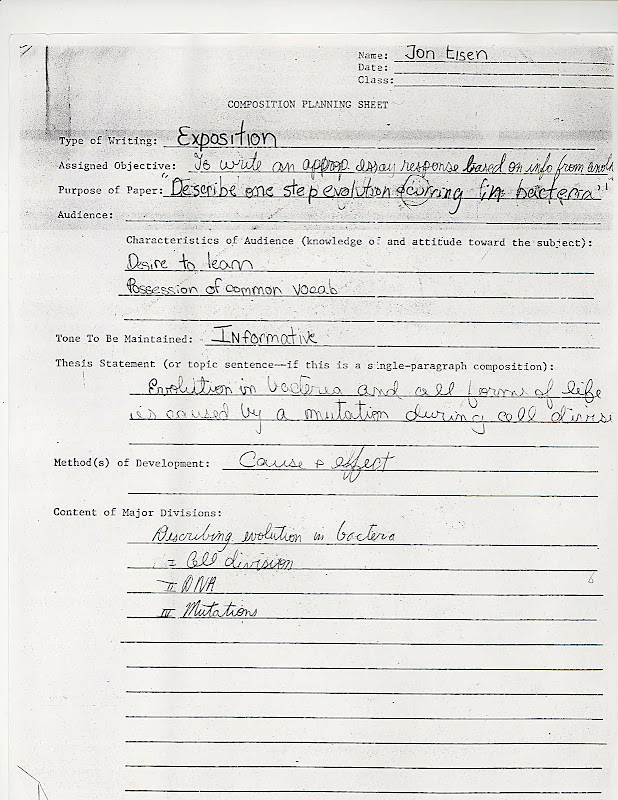 Name: Jon Eisen
Date:
Class:
COMPOSITION PLANNING SHEET
Type of Writing: Exposition
Assigned Objective: To write an approp. essay response based on info from
Purpose of Paper: "Describe one step evolution occurring in bacteria"
Audience:
Characteristics of Audience (knowledge of and attitude toward the subject):
Desire to learn
Possession of common vocab
Tone To Be Maintained: Informative
Thesis Statement (or topic sentence--if this is a single-paragraph composition):
Evolution in bacteria and all forms of life
is caused by a mutation during cell divisi
Method(s) of Development: Cause & effect
Content of Major Divisions:
Describing evolution in bacteria
I Cell division
II DNA
III Mutations